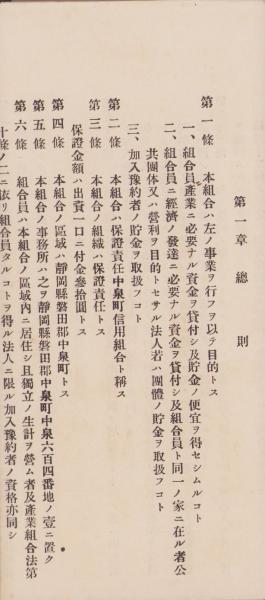 第一章 總則
第一條 本組合ハ左ノ事業ヲ行フヲ以テ目的トス
一、組合員產業ニ必要ナル資金ヲ貸付シ及貯金ノ便宜ヲ得セシムルコト
二、組合員ニ經濟ノ發達ニ必要ナル資金ヲ貸付シ及組合員ト同一ノ家ニ在ル者公
共團体又ハ營利ヲ目的トセサル法人若ハ團體ノ貯金ヲ取扱フコト
三、加入豫約者ノ貯金ヲ取扱フコト
第二條 本組合ハ保證責任中泉町信用組合ト稱ス
第三條 本組合ノ組織ハ保證責任トス
保證金額ハ出資一口ニ付金參拾圓トス
第四條 本組合ノ區域ハ靜岡縣磐田郡中泉町トス
第五條 本組合ノ事務所ハ之ヲ靜岡縣磐田郡中泉町中泉六百四番地ノ壹ニ置ク
第六條 組合員ハ本組合ノ區域內ニ居住シ且獨立ノ生計ヲ營ム者及產業組合法第
十條ノ二ニ依リ組合員タルコトヲ得ル法人ニ限ル加入豫約者ノ資格亦同シ